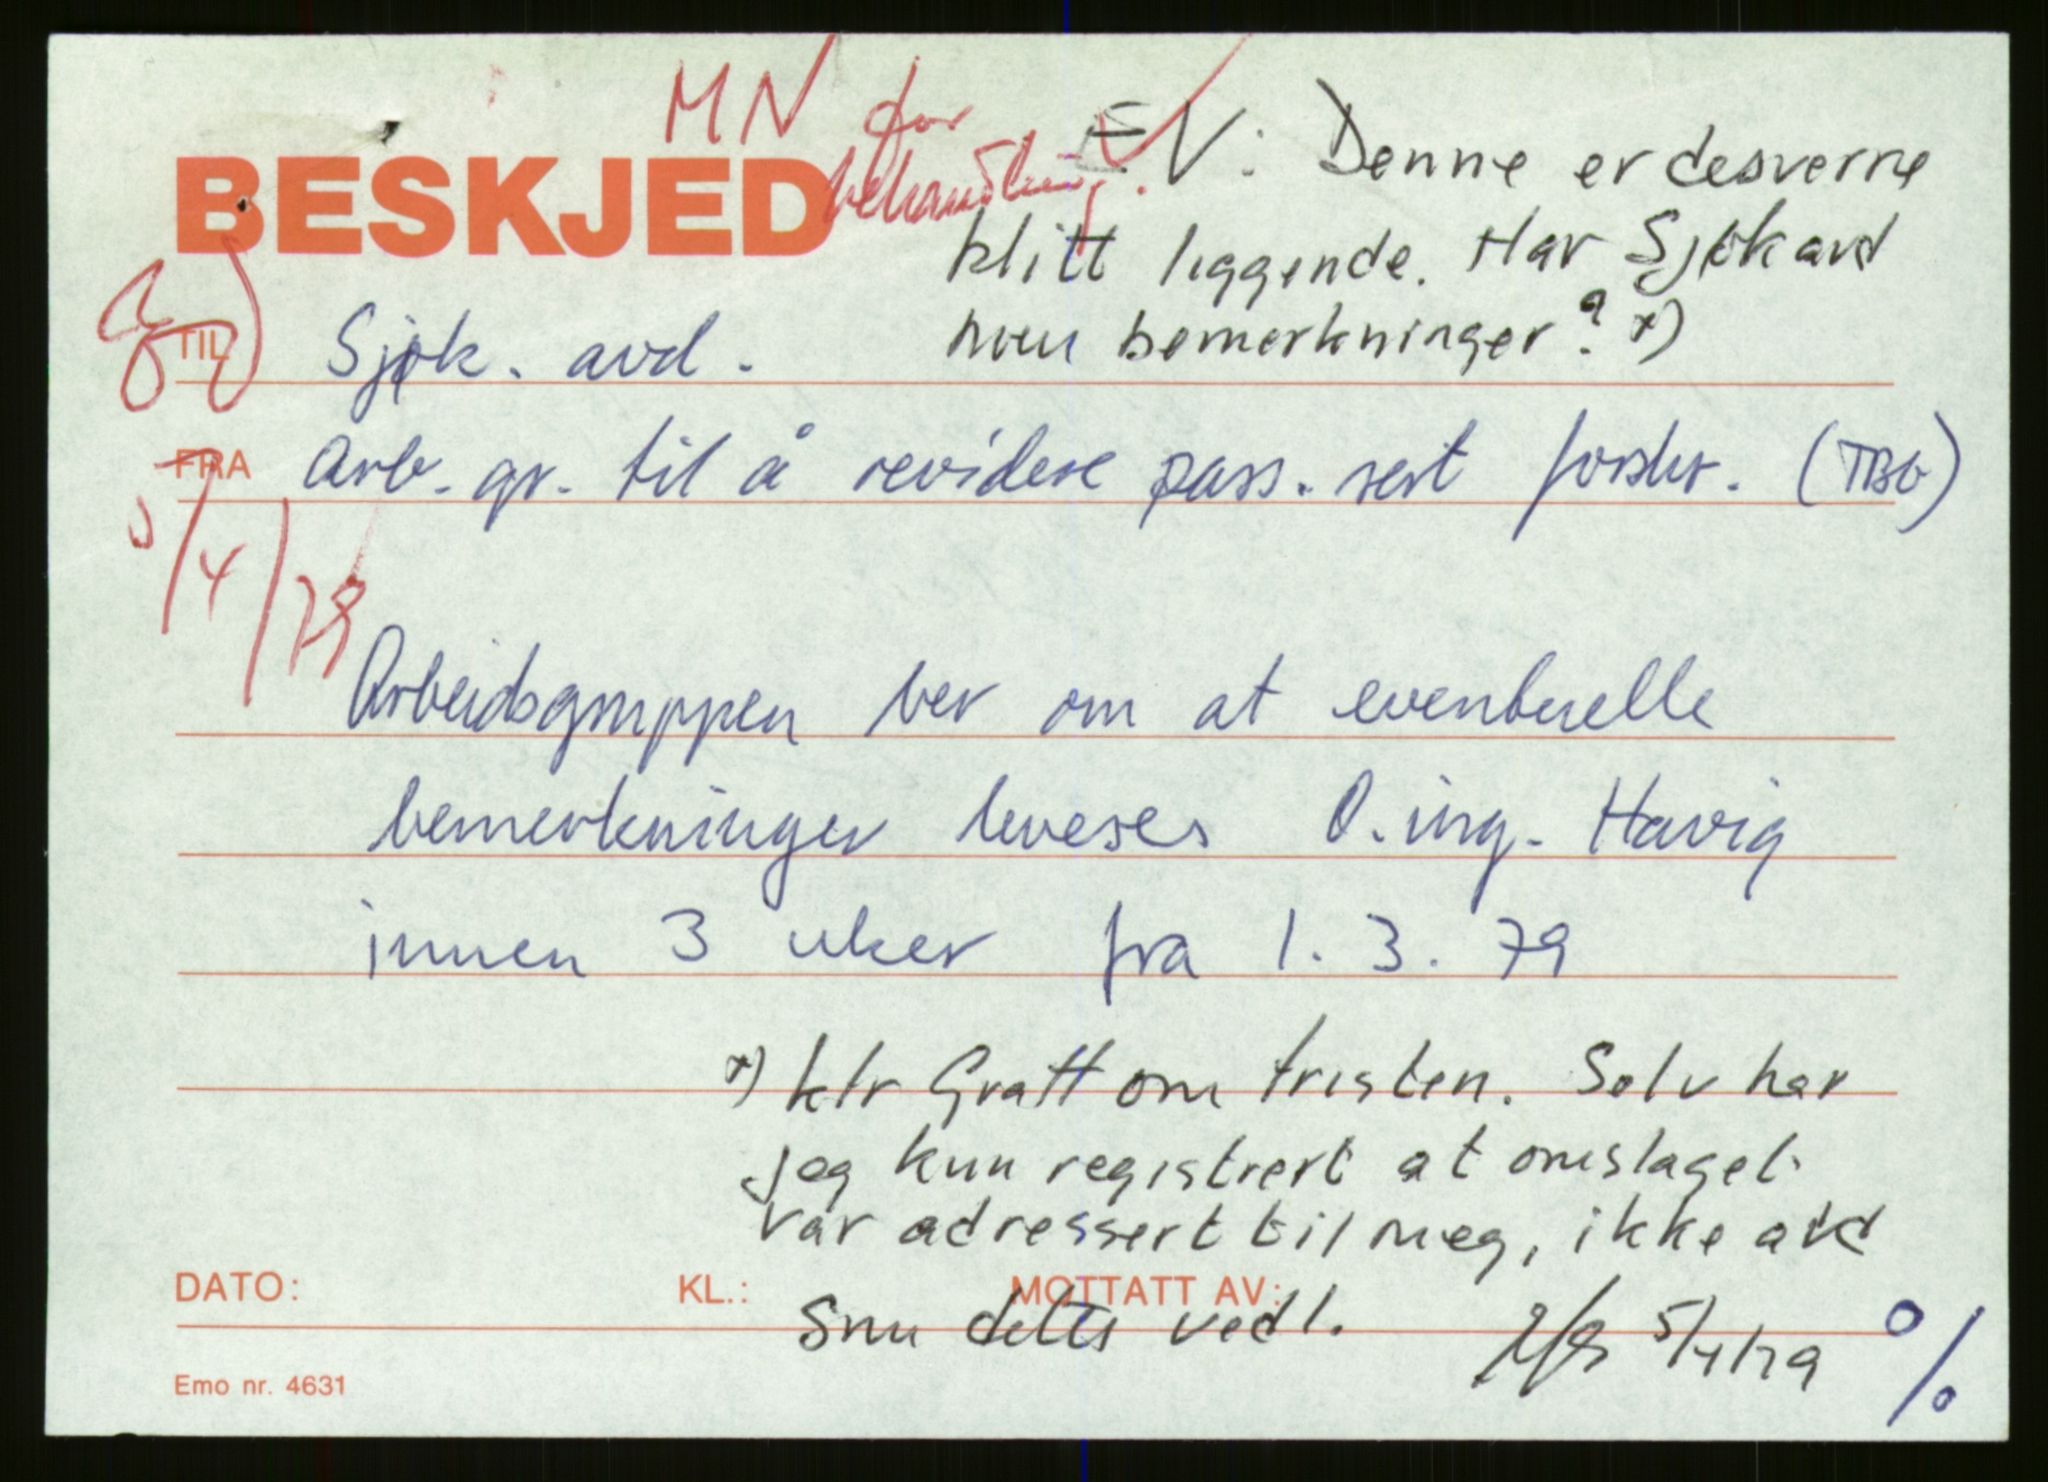 MN for
behandling.
EV: Denne er desverre
blitt liggende. Har Sjøkavd
noen bemerkninger? x)
BESKJED
TIL Sjøk. avd.
FRA Arb. gr. til å revidere pass. sert forskr. (TBG)
5/4/79
Arbeidsgruppen ber om at eventuelle
bemerkninger leveres O.ing. Havig
innen 3 uker fra 1.3.79
x) ktr Gratt om fristen. Selv har
jeg kun registrert at omslaget
var adressert til meg, ikke avd
Smn dette vedl. 5/4/79 %
DATO: KL.: MOTTATT AV:
Emo nr. 4631